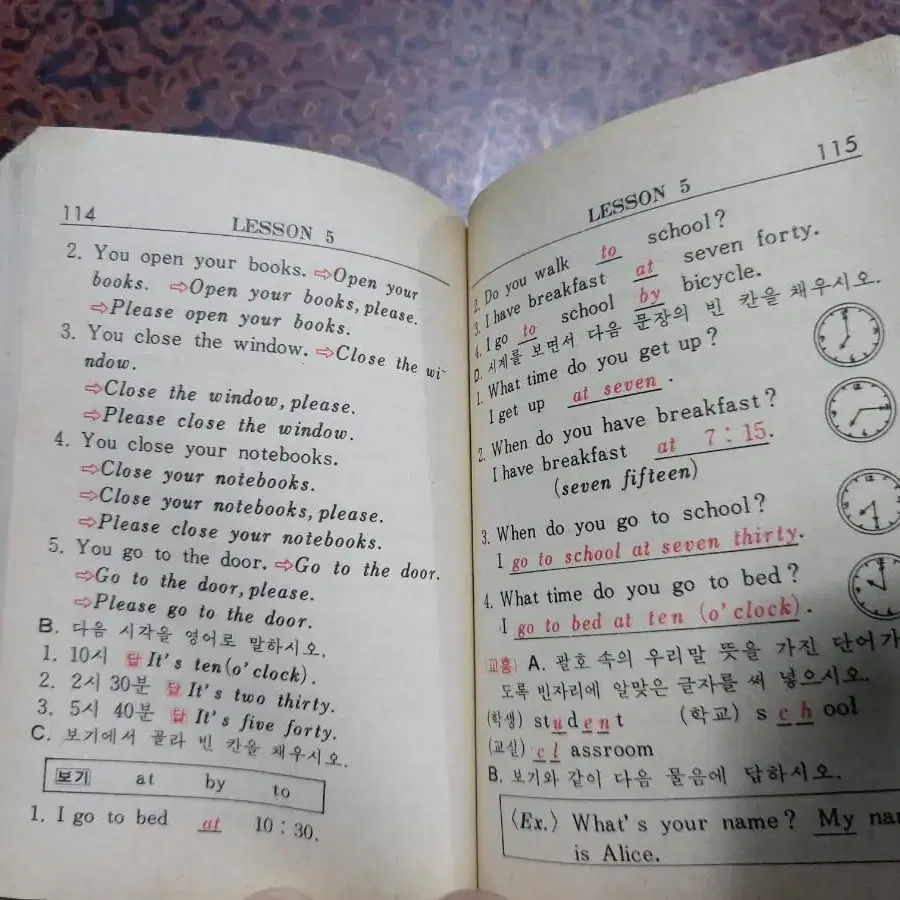 114
LESSON 5
2. You open your books. ⇨Open your
books. ⇨Open your books, please.
⇨Please open your books.
3. You close the window. ⇨Close the wi-
ndow.
⇨Close the window, please.
⇨Please close the window.
4. You close your notebooks.
⇨Close your notebooks.
⇨Close your notebooks, please.
⇨Please close your notebooks.
5. You go to the door. ⇨Go to the door.
⇨Go to the door, please.
⇨Please go to the door.
B. 다음 시각을 영어로 말하시오.
1. 10시 답 It's ten(o'clock).
2. 2시 30분 답 It's two thirty.
3. 5시 40분 답 It's five forty.
C. 보기에서 골라 빈 칸을 채우시오.
보기 at by to
1. I go to bed at 10:30.
115
LESSON 5
2. Do you walk to school?
3. I have breakfast at seven forty.
4. I go to school by bicycle.
D. 시계를 보면서 다음 문장의 빈 칸을 채우시오.
1. What time do you get up?
I get up at seven.
2. When do you have breakfast?
I have breakfast at 7:15.
(seven fifteen)
3. When do you go to school?
I go to school at seven thirty.
4. What time do you go to bed?
I go to bed at ten (o'clock).
A. 괄호 속의 우리말 뜻을 가진 단어가
도록 빈자리에 알맞은 글자를 써 넣으시오.
(학생) student (학교) school
(교실) classroom
B. 보기와 같이 다음 물음에 답하시오.
〈Ex.〉 What's your name? My na
is Alice.